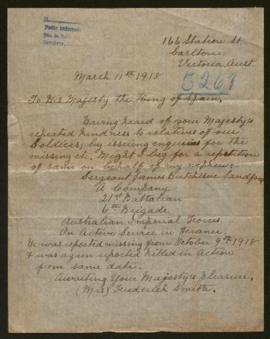 166 Station St
Carlton
Victoria, Aust
March 11th 1918
5268
To His Majesty the King of Spain,
Having heard of your Majestys
repeated kindness to relatives of our
Soldiers, by issuing enquiries for the
missing etc. Might I beg for a repetition
of same on behalf of my nephew
Sergeant James
A Company
21st Battalion
6th Brigade
Australian Imperial Forces
On Active Service in France.
He was reported missing from October 9th 1918
& was again reported killed in Action
from same date.
Awaiting Your Majestys pleasure.
(Mrs) Frederick Smith.